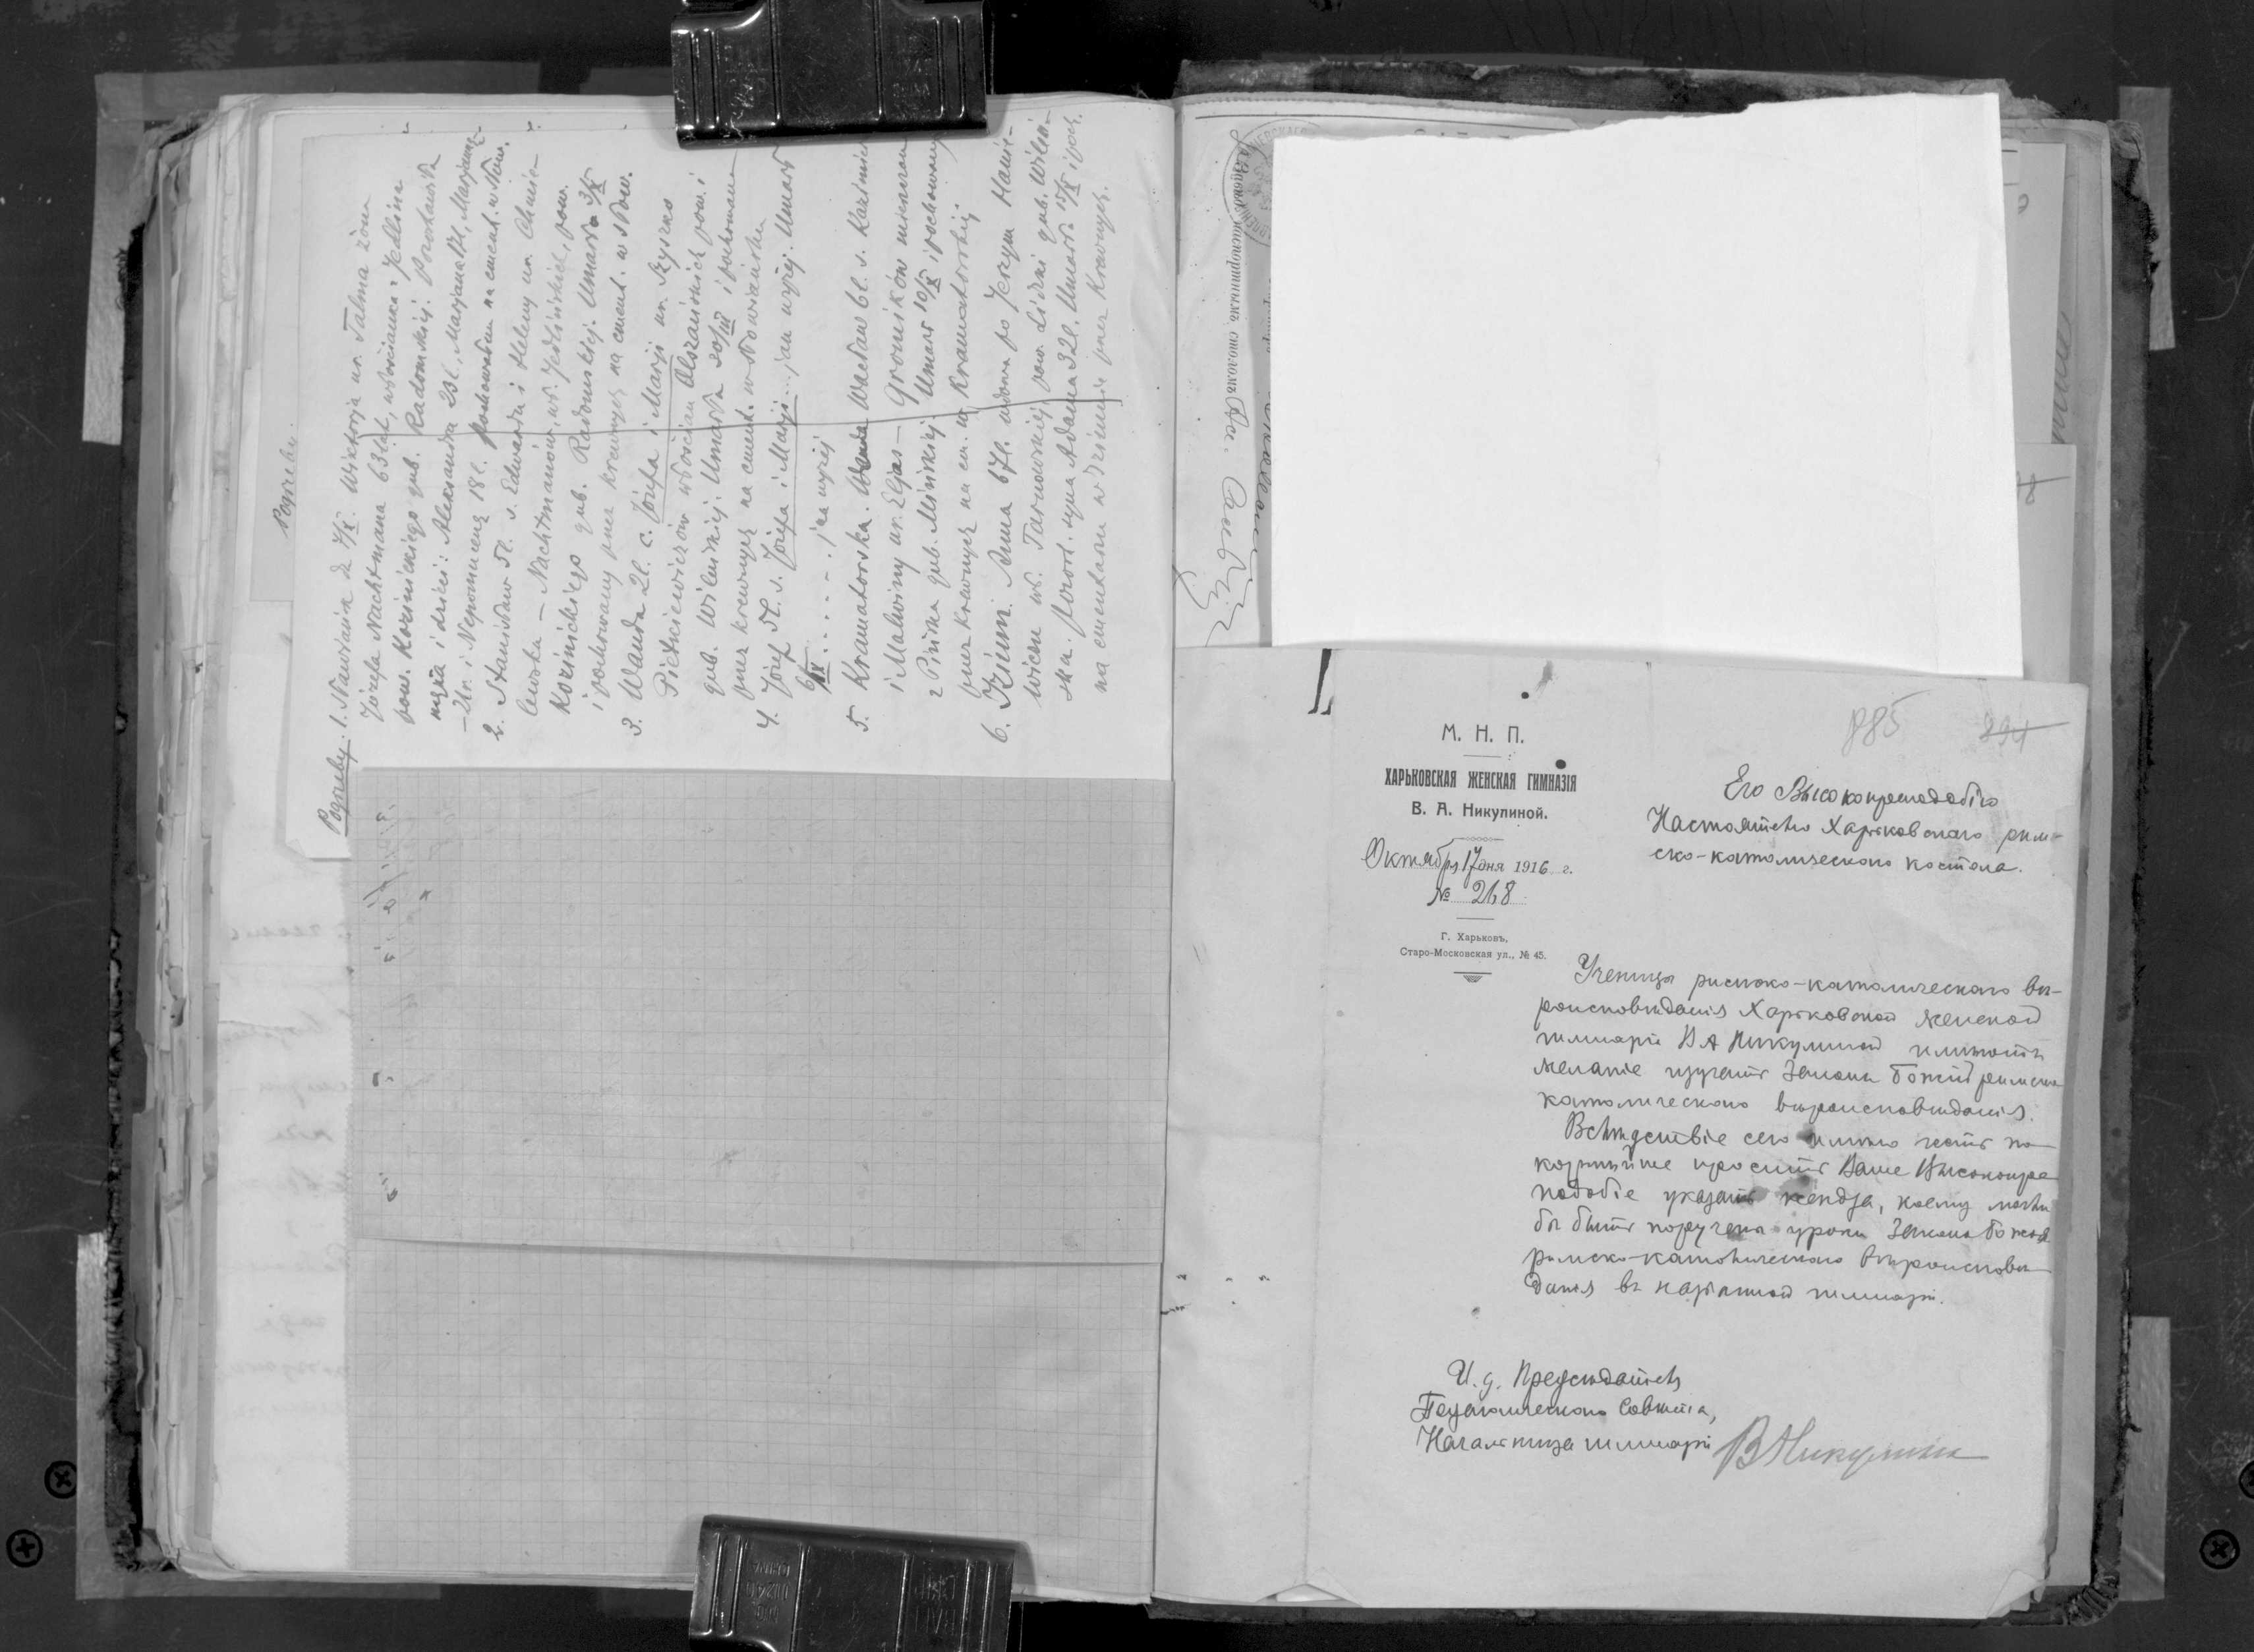 Pogrzeby.
Pogrzeby. 1. Nawiasin d. 4/IX. Wiktorja ur. Talma żona
Józefa Nachtmana 63 lat, włościanka z Jedlina
pow. Kozinickiego gub. Radomskiej. Pozostawiła
męża i dzieci: Aleksandra 23l, Marjana 17l, Marjannę
i Nepomucenę 18l. pochowana na cment. w Now.
2. Stanisław 5l. s. Edwarda i Heleny ur. Chmie-
lewska — Nachtmanów, wł. Jedlińskich, pow.
Kozinickiego gub. Radomskiej. Umarł 3/IX
i pochowany przez krewnych na cment. w Now.
3. Wanda 2l. c. Józefa i Marji ur. Szyszko
Pietkiewiczów włościan Olszańskich pow. i
gub. Wileńskiej. Umarła 30/VIII i pochowana
przez krewnych na cment. w Nowiasinku
4. Józef 5l. s. Józefa i Marji... jan wyżej. Umarł
6/IX . . . . . . jan wyżej
5. Kramatorska. Wacław 6l. s. Kazimierza
i Malwiny ur. Eljas — Gromików mieszczan
z Pińska gub. Mińskiej. Umarł 10/IX i pochowany
przez krewnych na cm. w Kramatorskiej.
6. Irżimi. Anna 67l. wdowa po Jerzym Hanie-
wiczu wł. Tarnowskiej, pow. Lidzki gub. Wileń-
ska. pozost. syna Adama 32l. Umarła 15/IX i poch.
na cmentarzu w Irżimie przez Krewnych.
885 894
М. Н. П.
ХАРЬКОВСКАЯ ЖЕНСКАЯ ГИМНАЗІЯ
В. А. Никулиной.
Октября 17 дня 1916 г.
№ 268
Г. Харьковъ,
Старо-Московская ул., № 45.
Его Высокопреподобію
Настоятелю Харьковскаго рим-
ско-католическаго костела.
Ученицы римско-католическаго вѣ-
роисповѣданія Харьковской женской
гимназіи В А Никулиной имѣютъ
желаніе изучать Законъ Божій римско
католическаго вѣроисповѣданія.
Вслѣдствіе сего имѣю честь по-
корнѣйше просить Ваше Высокопре
подобіе указать ксендза, коему могли
бы быть поручены уроки Закона Божія
римско-католическаго вѣроисповѣ-
данія въ названной гимназіи.
И. д. Предсѣдателя
Педагогическаго Совѣта,
Начальница гимназіи ВНикулина